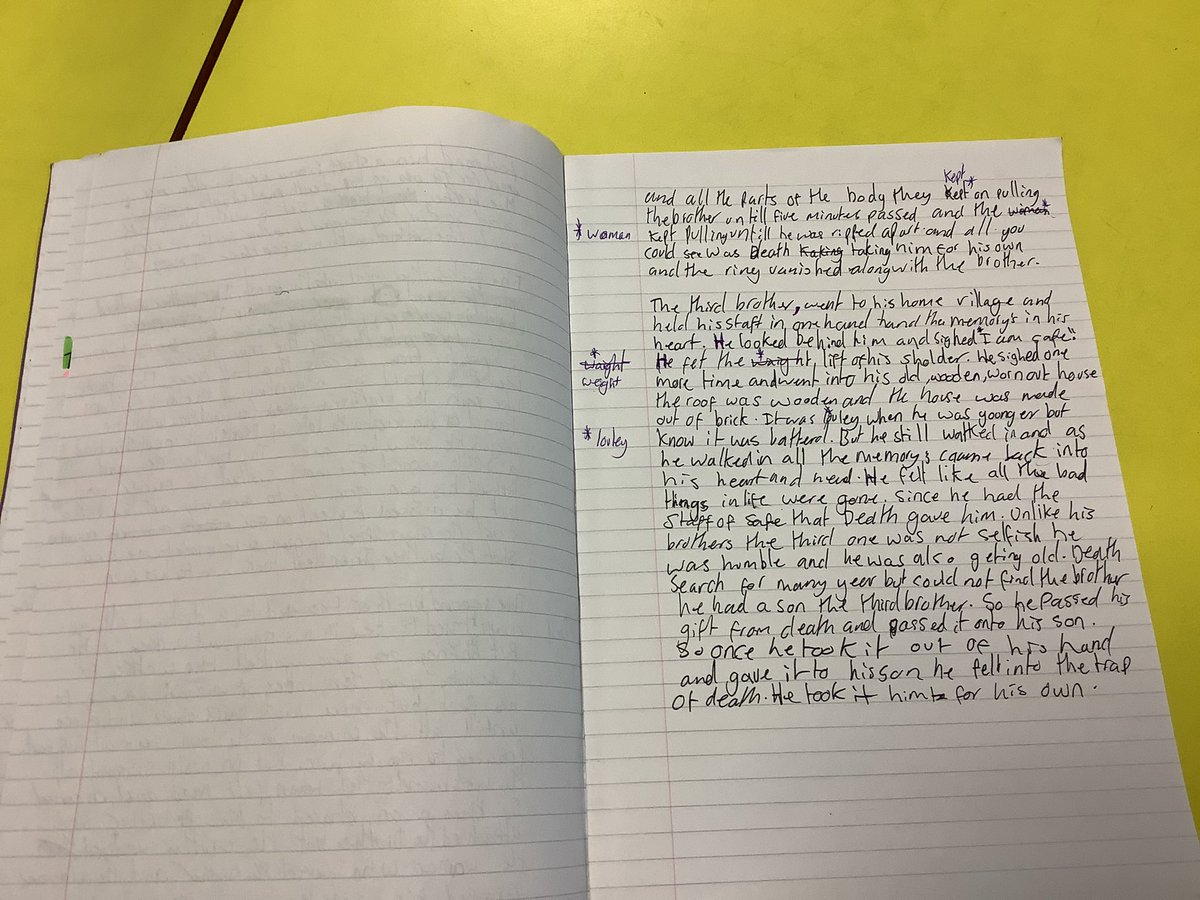 Kept
and all the parts of the body they kept* on pulling
the brother untill five minutes passed and the woman*
* woman
kept pulling untill he was ripped apart and all you
could see was Death taking him for his own
and the ring vanished along with the brother.
The third brother, went to his home village and
held his staff in one hand hand the memory's in his
heart. He looked behind him and sighed "I am safe".
* waight
weight
He felt the waight, lift of his sholder. He sighed one
more time and went into his old, wooden, worn out house
the roof was wooden and the house was made
out of brick. It was luley when he was yoonger but
* lovley
know it was batterd. But he still walked in and as
he walked in all the memorys came back into
his heart and head. He felt like all the bad
things in life were gone. Since he had the
staff of safe that Death gave him. Unlike his
brothers the third one was not selfish he
was humble and he was also geting old. Death
search for many year but could not find the brother
he had a son the third brother. So he Passed his
gift from death and passed it onto his son.
So once he took it out of his hand
and gave it to his son he fell into the trap
of death. He took it him for his own.